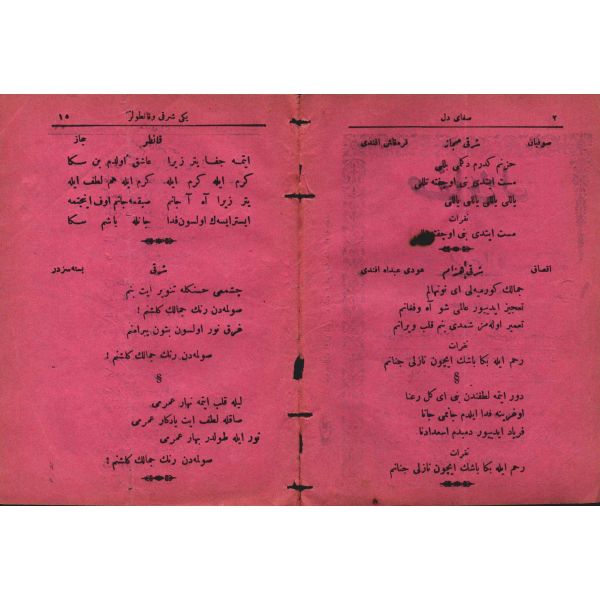 ٢ صفای دل
صوفیان شرقی حجاز قره‌قاش افندی
حزنم کدرم دکلمی بللی
مست ایتدی بنی اوچفته تللی
یاللی یللی یاللی یاللی
نقرات
مست ایتدی بنی اوچفته تللی
اقصاق شرقی هزام عودی عبداه افندی
جمالك کورمیه‌لی ای نونهالم
تعجیز ایدییور عالمی شو آه وفغانم
تعمیر اوله‌من شمدی بنم قلب ویرانم
نقرات
رحم ایله بکا باشك ایچون نازلی جنانم
§
دور ایتمه لطفندن بنی ای کل رعنا
اوغرینه فدا ایلدم جانمی جانا
فریاد ایدییور دمبدم اسعدادنا
نقرات
رحم ایله بکا باشك ایچون نازلی جنانم
یکی شرقی وقانطولر ١٥
قانطو حجاز
ایتمه جفا یتر زیرا عاشق اولدم بن سکا
کرم ایله کرم ایله کرم ایله هم لطف ایله
یتر زیرا آه آ جانم صیقمه جانم اوف اینجتمه
ایسترایسه‌ك اولسون فدا جانله باشم سکا
شرقی بسته‌سزدر
چشممی حسنکله تنویر ایت بنم
صولمه‌دن رنك جمالك کلشنم !
غرق نور اولسون بتون پیرامنم
صولمه‌دن رنك جمالك کلشنم !
§
لیله قلب ایتمه نهار عمرمی
صاقله لطف ایت یادکار عمرمی
نور ایله طولدر بهار عمرمی
صولمه‌دن رنك جمالك کلشنم !